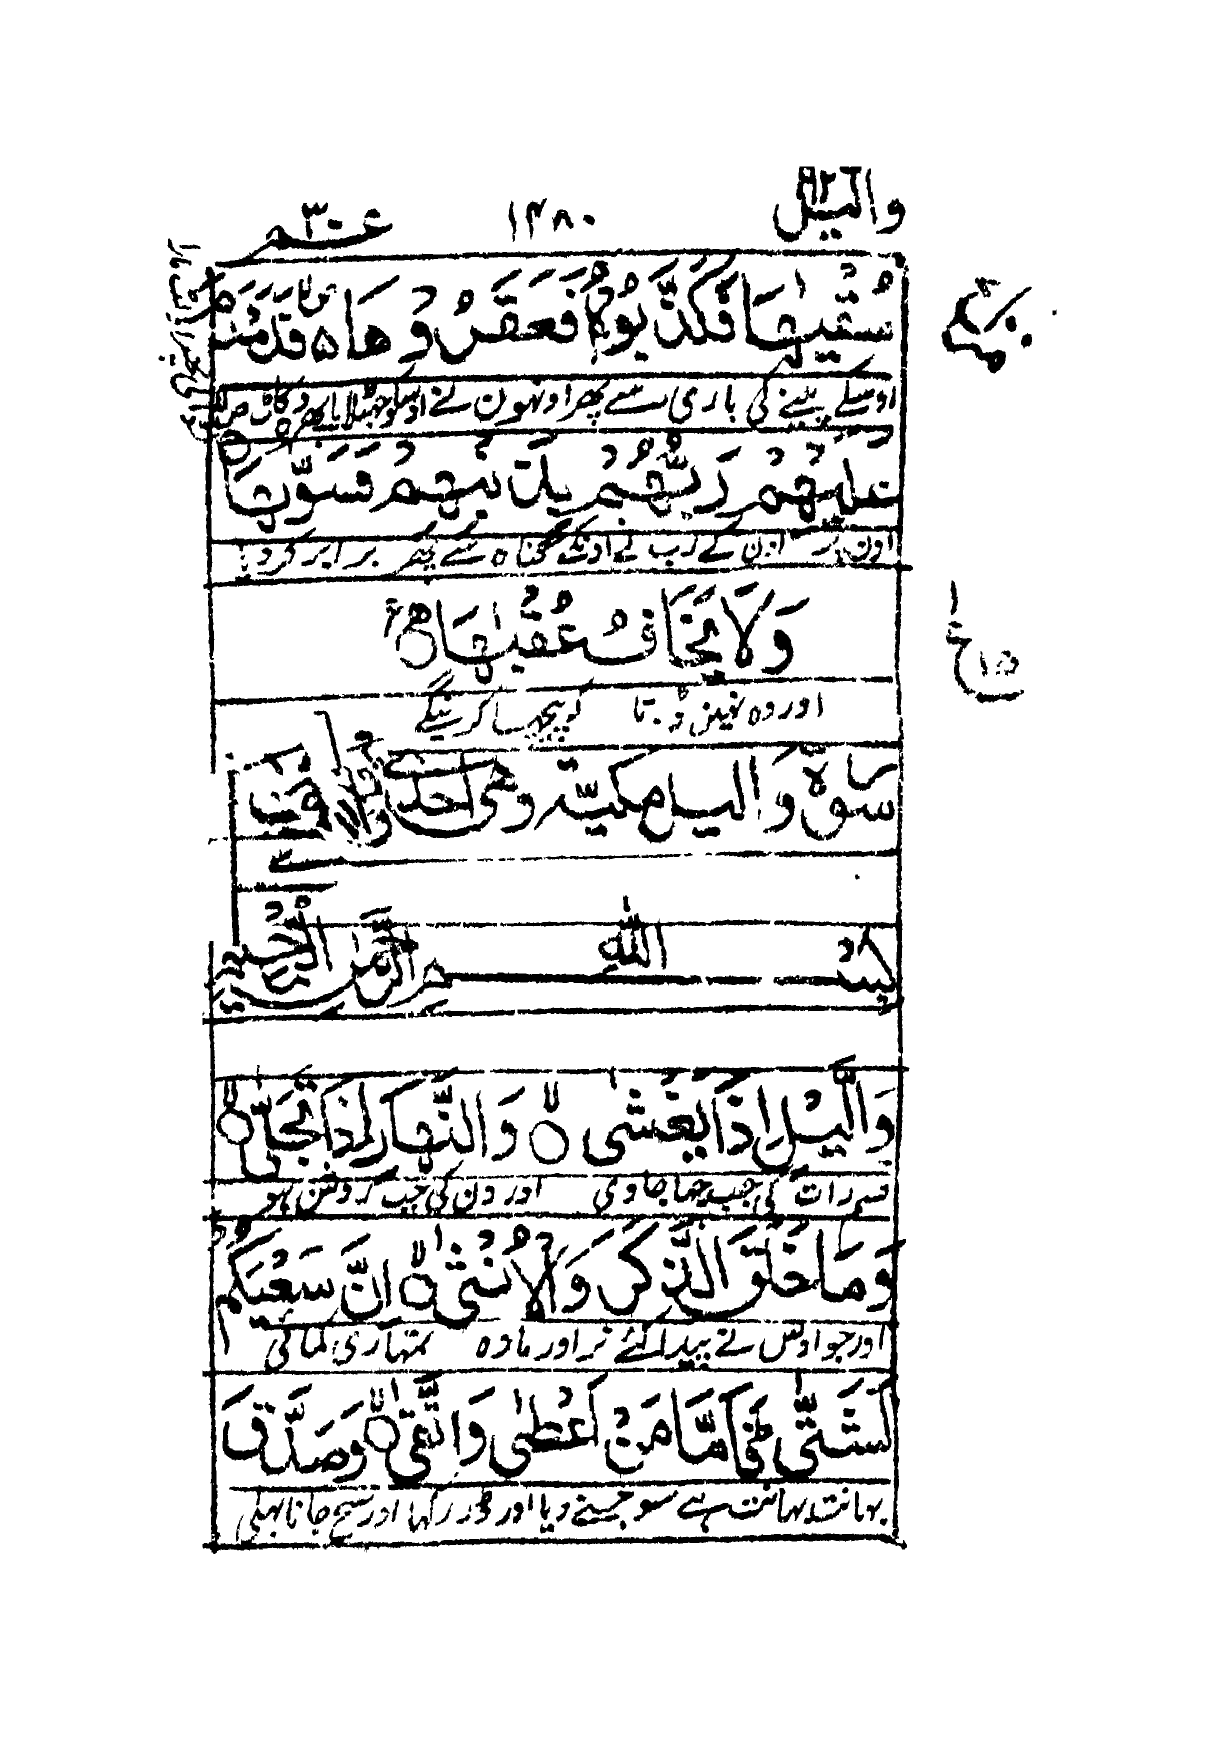 والیل ۹۲
۱۴۸۰
عم ۳۰
سُقْيٰهَا فَكَذَّبُوْهُ فَعَقَرُوْهَا ۵ فَدَمْدَمَ
اوسکے پینے کی باری سے پھر اونہون نے اوسکو جھٹلایا پھر
عَلَيْهِمْ رَبُّهُمْ بِذَنْبِهِمْ فَسَوّٰىهَا
اون پر اون کے رب نے اونکے گناہ سے پھر برابر کر دیا
وَلَا يَخَافُ عُقْبٰهَا
اور وہ نہین ڈرتا کہ پیچھا کرینگے
سورة والیل مکیة وهی احدی
بسم الله الرحمن الرحیم
وَالَّيْلِ اِذَا يَغْشٰى ۝ وَالنَّهَارِ اِذَا تَجَلّٰى ۝
قسم رات کی جب چھا جاوی اور دن کی جب روشن ہو
وَمَا خَلَقَ الذَّكَرَ وَالْاُنْثٰى ۝ اِنَّ سَعْيَكُمْ
اور جو اوس نے پیدا کئے نر اور مادہ تمہاری کمائی
لَشَتّٰى فَاَمَّا مَنْ اَعْطٰى وَاتَّقٰى ۝ وَصَدَّقَ
بہانت بہانت ہے سو جسنے دیا اور ڈر رکہا اور سچ جانا بہلی